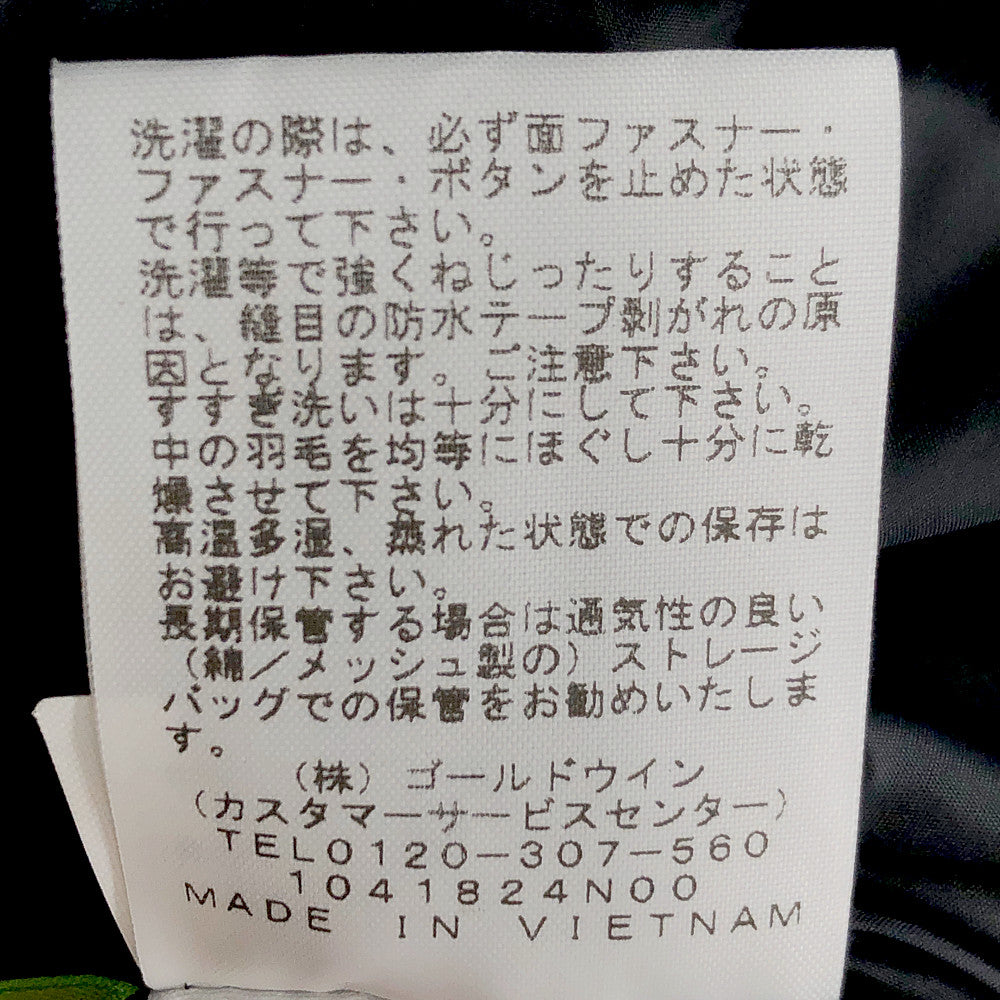 洗濯の際は、必ず面ファスナー・
ファスナー・ボタンを止めた状態
で行って下さい。
洗濯等で強くねじったりすること
は、縫目の防水テープ剥がれの原
因となります。ご注意下さい。
すすぎ洗いは十分にして下さい。
中の羽毛を均等にほぐし十分に乾
燥させて下さい。
高温多湿、蒸れた状態での保存は
お避け下さい。
長期保管する場合は通気性の良い
（綿／メッシュ製の）ストレージ
バッグでの保管をお勧めいたしま
す。
（株）ゴールドウイン
（カスタマーサービスセンター）
TEL0120-307-560
1041824N00
MADE IN VIETNAM